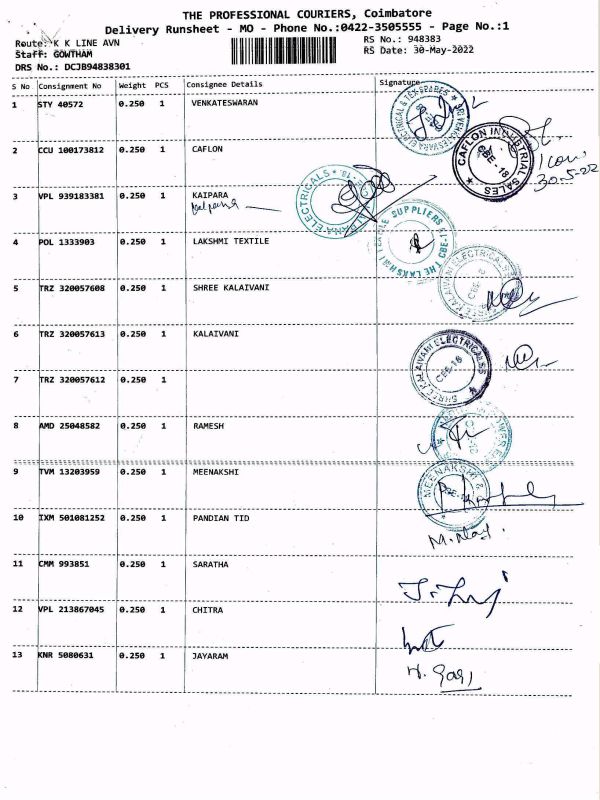 THE PROFESSIONAL COURIERS, Coimbatore
Delivery Runsheet - MO - Phone No.:0422-3505555 - Page No.:1
Route: K K LINE AVN
RS No.: 948383
Staff: GOWTHAM
RS Date: 30-May-2022
DRS No.: DCJB94838301
S No Consignment No Weight PCS Consignee Details Signature
1 STY 40572 0.250 1 VENKATESWARAN
SRI VENKATESWARA ELECTRICAL & TEX SPARES
2 CCU 100173812 0.250 1 CAFLON
CAFLON INDUSTRIAL SALES
CBE-18
30-5-22
3 VPL 939183381 0.250 1 KAIPARA
kalpana
KALPANA ELECTRICALS
4 POL 1333903 0.250 1 LAKSHMI TEXTILE
THE LAKSHMI TEXTILE SUPPLIERS
5 TRZ 320057608 0.250 1 SHREE KALAIVANI
SHREE KALAIVANI ELECTRICALSS
6 TRZ 320057613 0.250 1 KALAIVANI
SHREE KALAIVANI ELECTRICALSS
CBE-18
7 TRZ 320057612 0.250 1
8 AMD 25048582 0.250 1 RAMESH
9 TVM 13203959 0.250 1 MEENAKSHI
MEENAKSHI &
10 IXM 501081252 0.250 1 PANDIAN TID
11 CMM 993851 0.250 1 SARATHA
12 VPL 213867045 0.250 1 CHITRA
13 KNR 5080631 0.250 1 JAYARAM